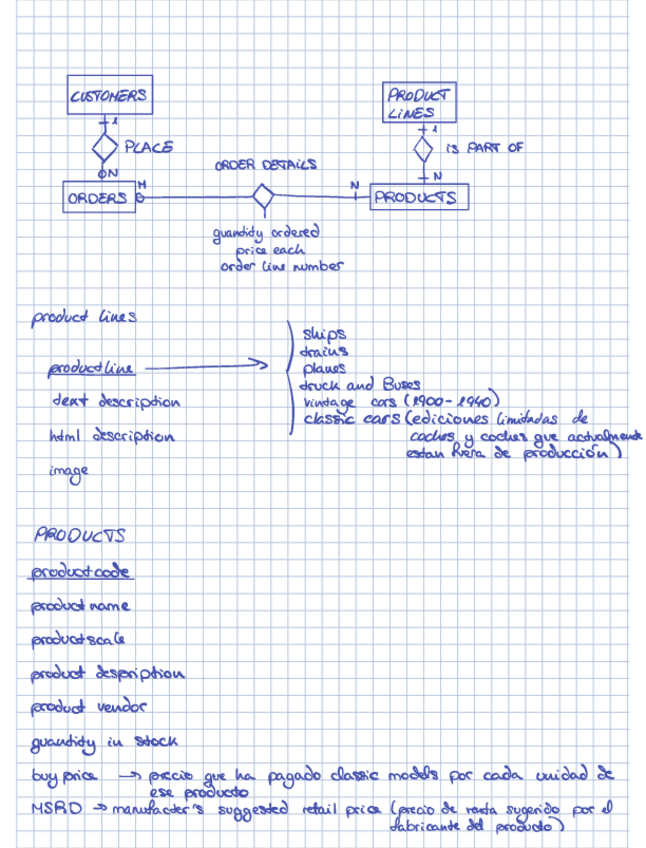 CUSTOMERS
PRODUCT
LINES
1
1
PLACE
IS PART OF
N
ORDER DETAILS
N
ORDERS
M
N
PRODUCTS
quandity ordered
price each
order line number
product lines
productline
text description
html description
image
ships
trains
planes
truck and Buses
vintage cars (1900-1940)
classic cars (ediciones limitadas de
coches y coches que actualmente
estan fuera de producción)
PRODUCTS
productcode
product name
productscale
product despription
product vendor
quandity in stock
buy price → precio que ha pagado classic models por cada unidad de
ese producto
MSRD → manufacter's suggested retail price (precio de venta sugerido por el
fabricante del producto)